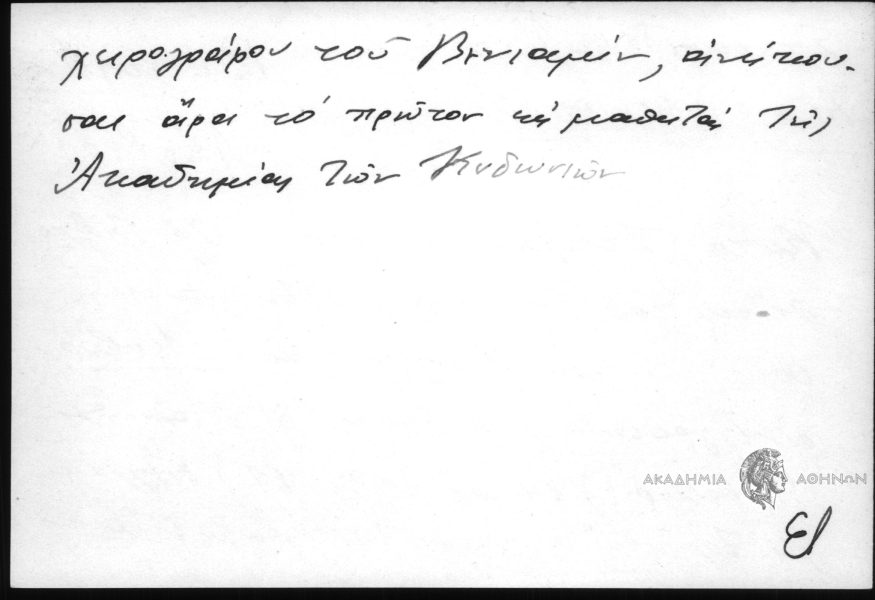 χειρογράφου τοῦ Βενιαμίν, ἀνήκου-
σαι ἄρα τὸ πρῶτον εἰς μαθητὰς τῆς
Ἀκαδημίας τῶν Κυδωνιῶν
ΑΚΑΔΗΜΙΑ ΑΘΗΝΩΝ